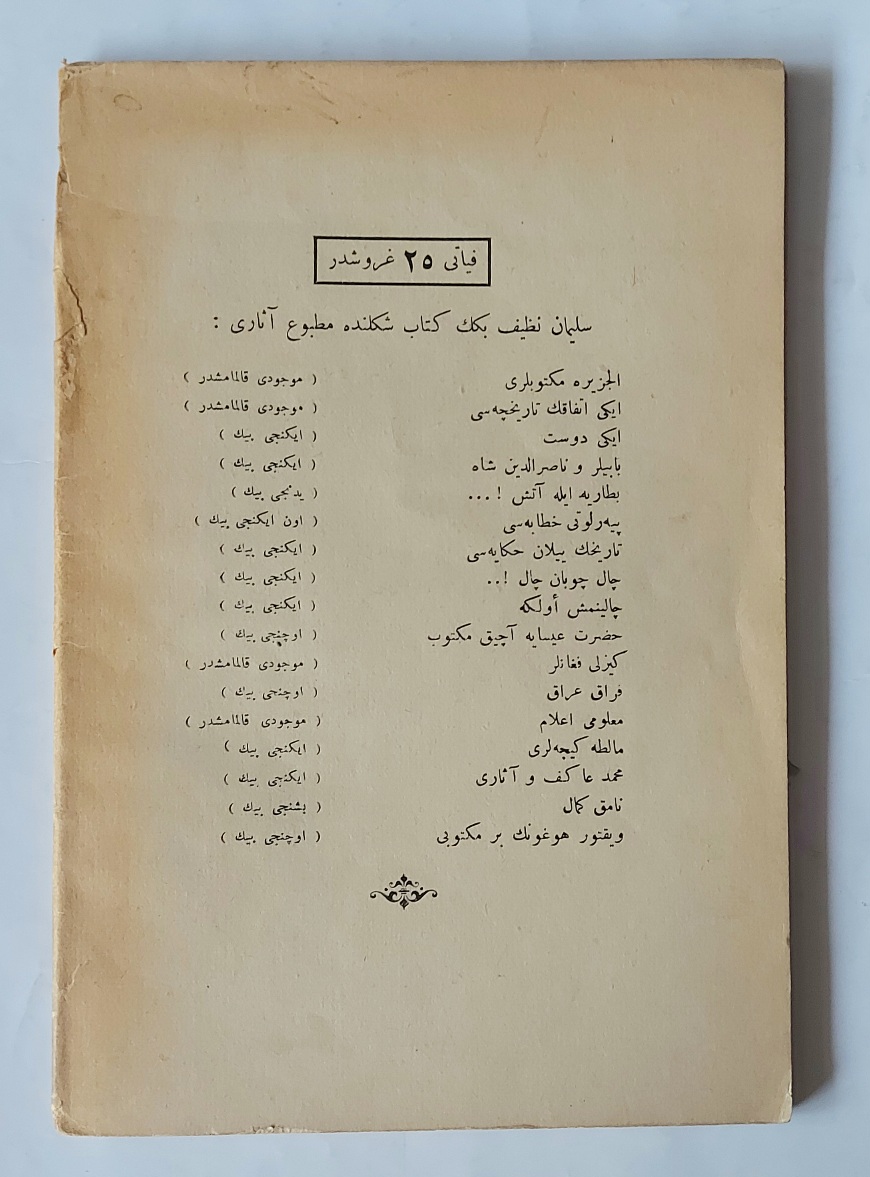 فیاتی ٢٥ غروشدر
سلیمان نظیف بكك كتاب شكلنده مطبوع آثاری :
الجزیره مكتوبلری ( موجودی قالمامشدر )
ایكی اتفاقك تاریخچه‌سی ( موجودی قالمامشدر )
ایكی دوست ( ایكنجی بیك )
بابیلر و ناصرالدین شاه ( ایكنجی بیك )
بطاریه ایله آتش ! ... ( یدنجی بیك )
پیه‌رلوتی خطابه‌سی ( اون ایكنجی بیك )
تاریخك ییلان حكایه‌سی ( ایكنجی بیك )
چال چوبان چال !.. ( ایكنجی بیك )
چالینمش أولكه ( ایكنجی بیك )
حضرت عیسایه آچیق مكتوب ( اوچنجی بیك )
كیزلی فغانلر ( موجودی قالمامشدر )
فراق عراق ( اوچنجی بیك )
معلومی اعلام ( موجودی قالمامشدر )
مالطه كیجه‌لری ( ایكنجی بیك )
محمد عاكف و آثاری ( ایكنجی بیك )
نامق كمال ( بشنجی بیك )
ویقتور هوغونك بر مكتوبی ( اوچنجی بیك )